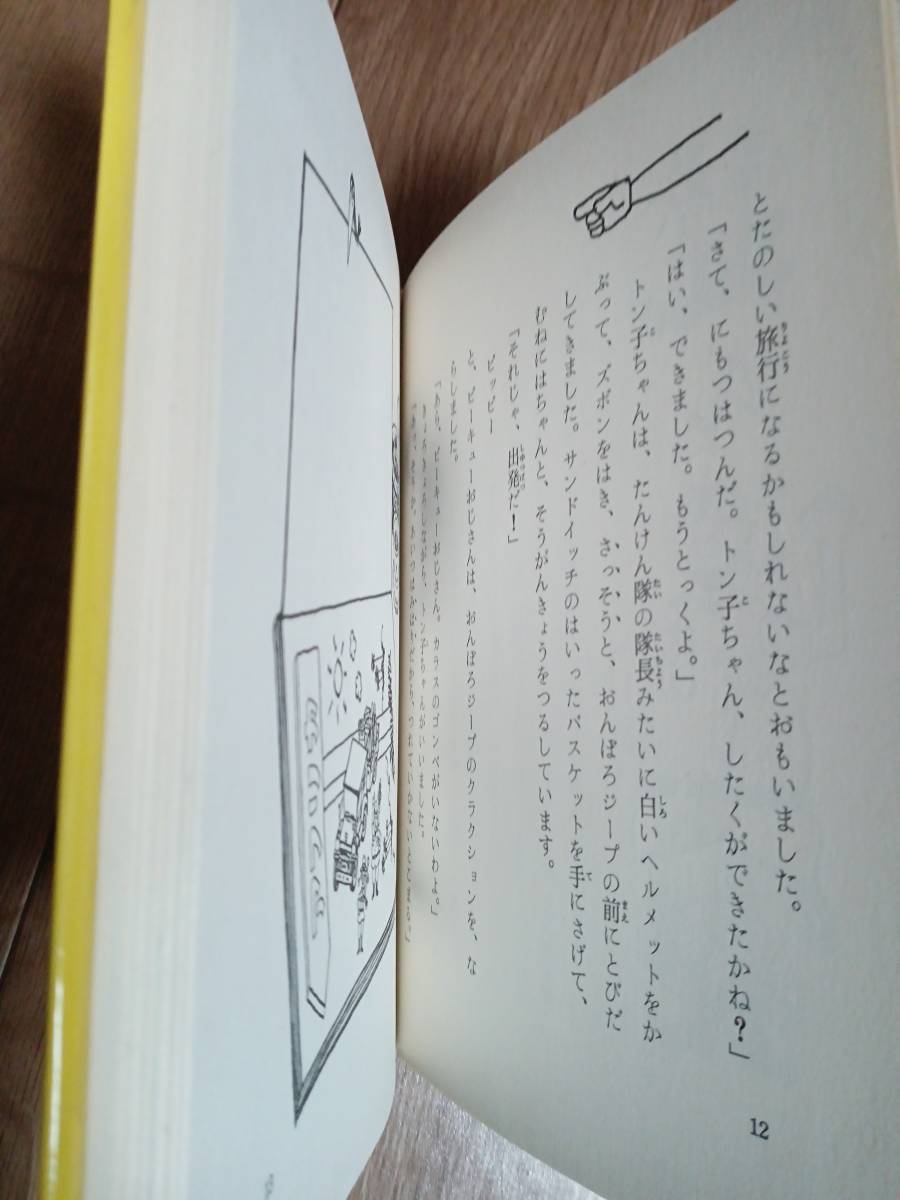 とたのしい旅行になるかもしれないなとおもいました。
「さて、にもつはつんだ。トン子ちゃん、したくができたかね？」
「はい、できました。もうとっくよ。」
トン子ちゃんは、たんけん隊の隊長みたいに白いヘルメットをか
ぶって、ズボンをはき、さっそうと、おんぼろジープの前にとびだ
してきました。サンドイッチのはいったバスケットを手にさげて、
むねにはちゃんと、そうがんきょうをつるしています。
「それじゃ、出発だ！」
ピッピー
と、ピーキューおじさんは、おんぼろジープのクラクションを、な
らしました。
「あら、ピーキューおじさん。カラスのゴンベがいないわよ。」
きょろきょろしながら、トン子ちゃんがいいました。
12